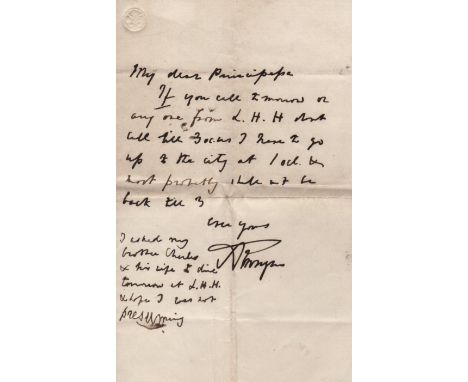 My dear Principessa
If you call tomorrow or
any one from L. H. H dont
call till 3 o'c as I have to go
up to the city at 1 ocl &
most probably shall not be
back till 3
ever yours
ATennyson
I asked my
brother Charles
& his wife to dine
tomorrow at L.H.H.
& hope I was not
presuming